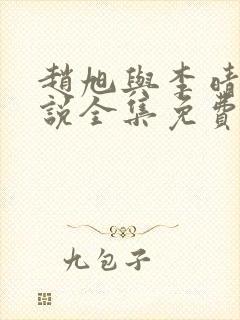 趙旭與李晴
說全集免費
九包子